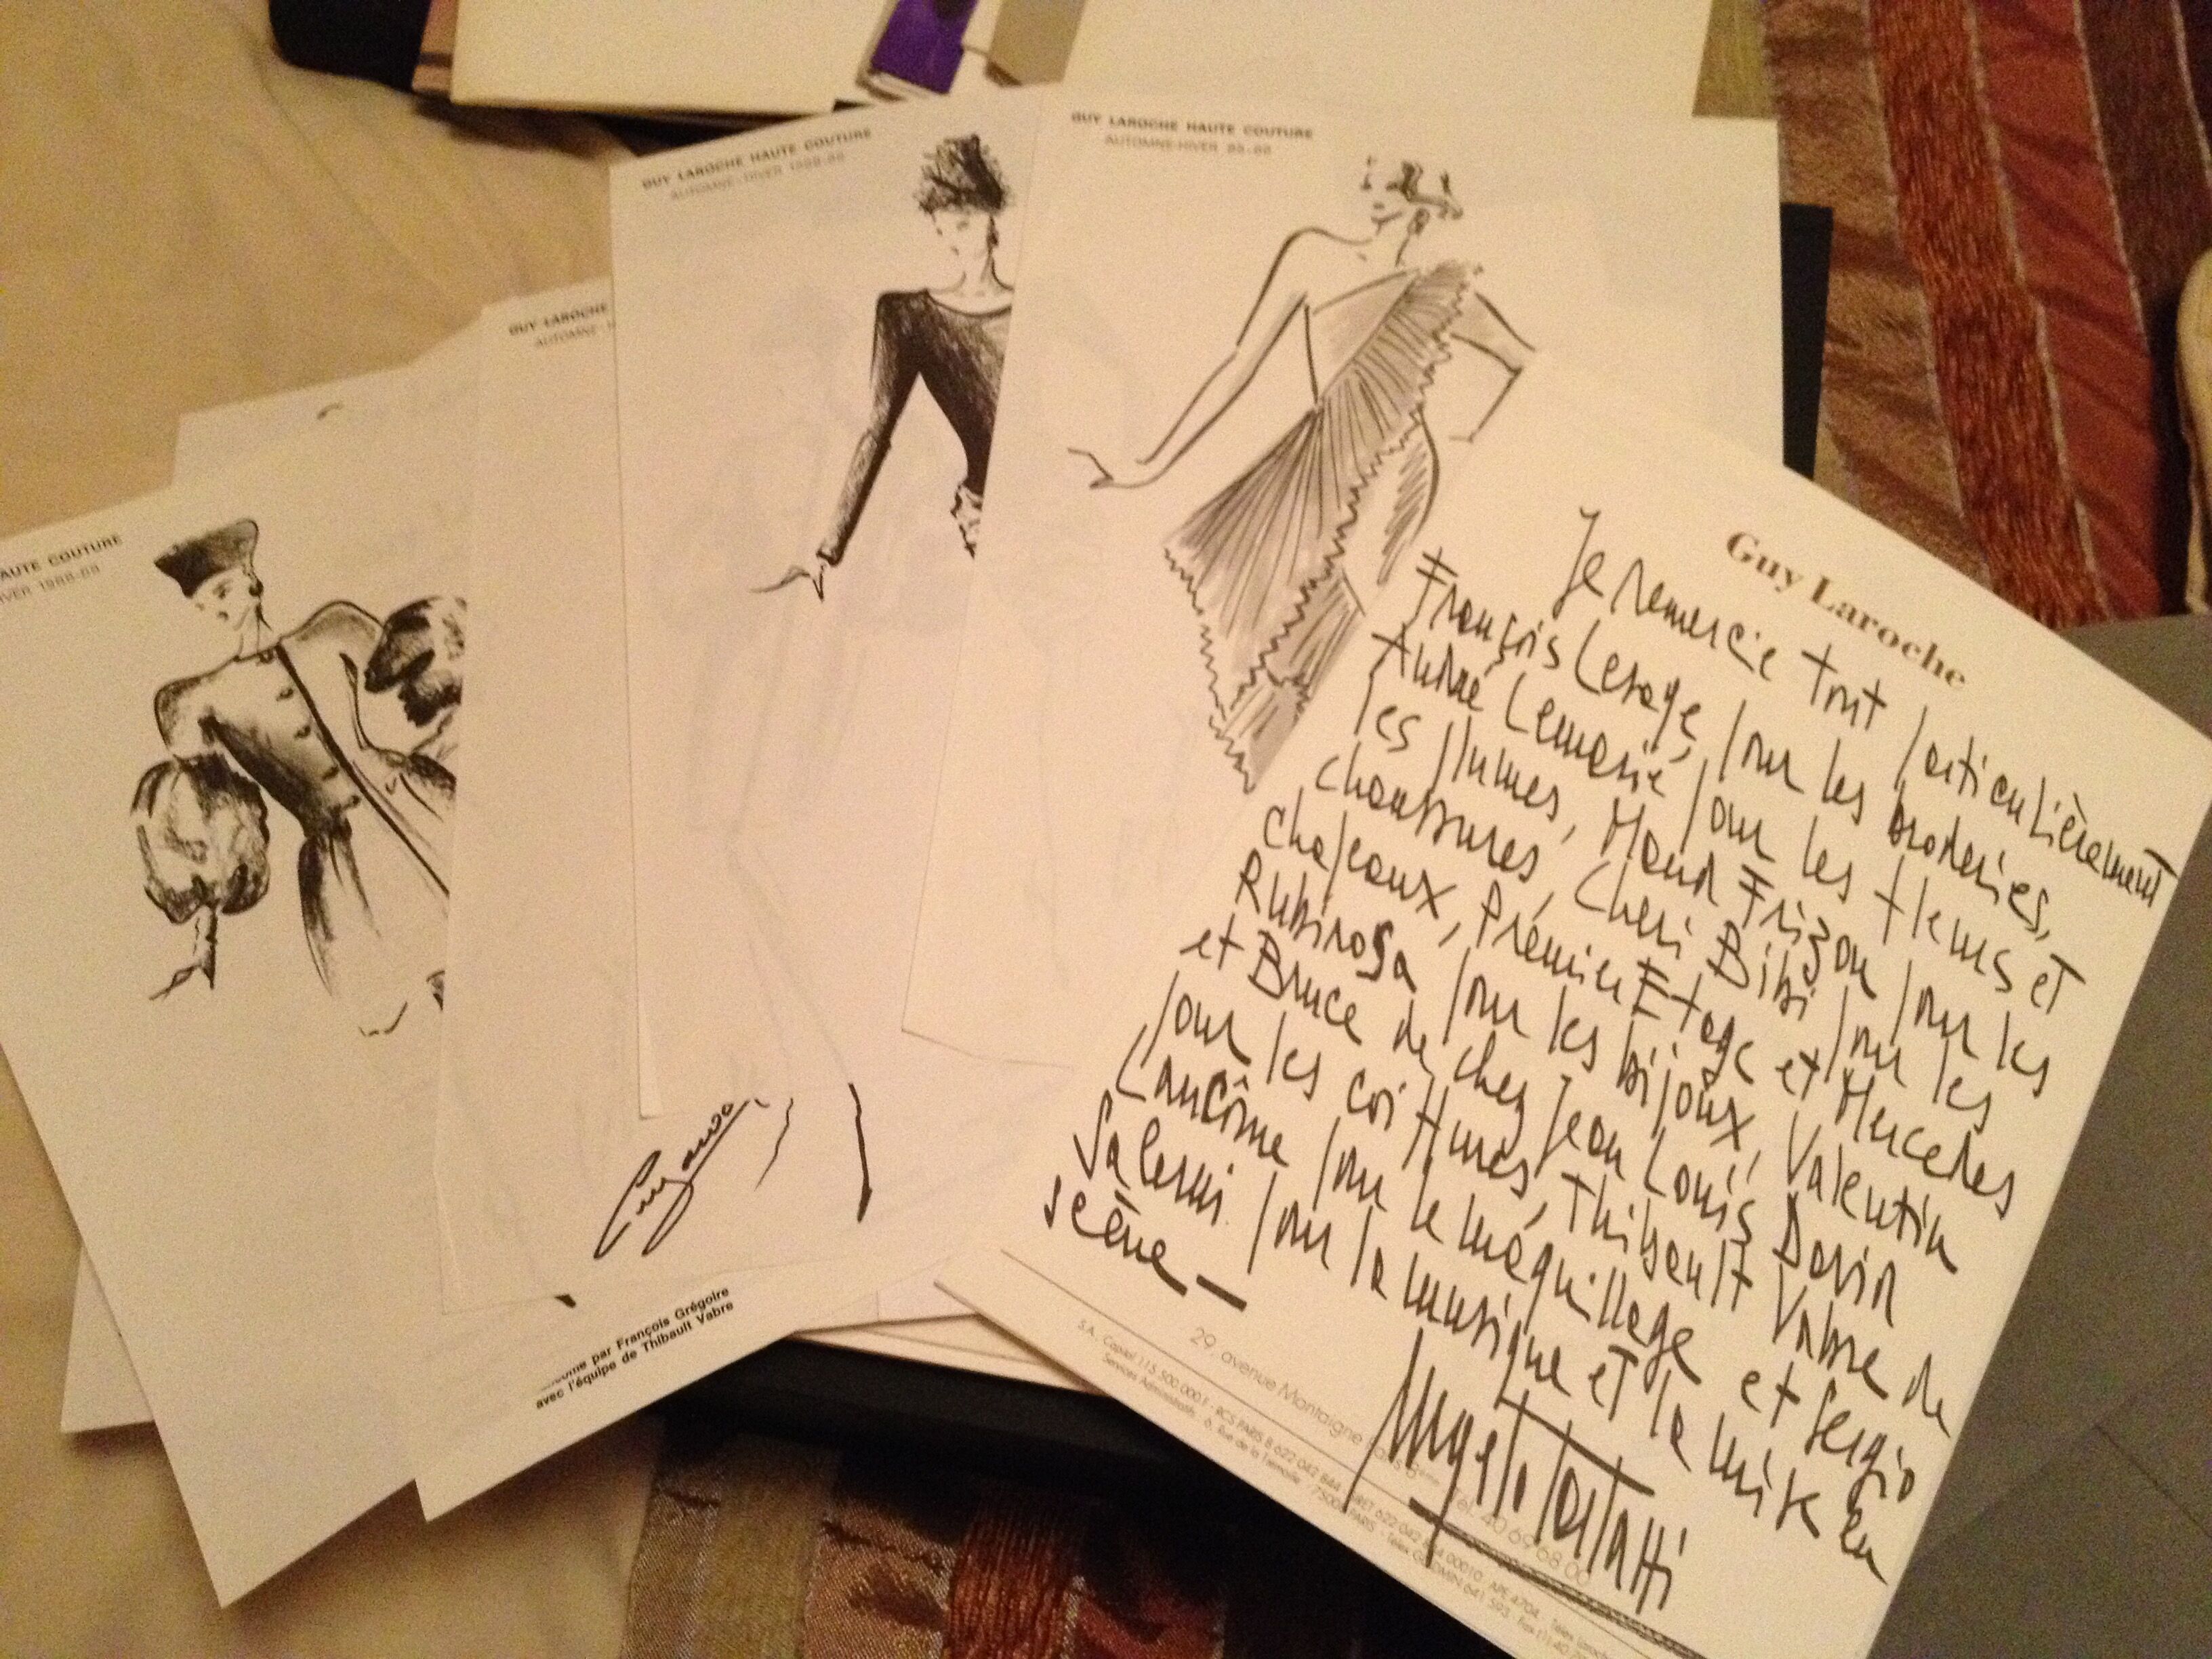 GUY LAROCHE HAUTE COUTURE
AUTOMNE-HIVER 1988-89
GUY LAROCHE HAUTE COUTURE
AUTOMNE-HIVER 88-89
GUY LAROCHE
AUTOMNE-H
AUTE COUTURE
IVER 1988-89
par François Grégoire
avec l'équipe de Thibault Vabre
Guy Laroche
Je remercie tout particulièrement
François Lesage, pour les broderies,
André Lemarié pour les fleurs et
les plumes, Maud Frizon pour les
chaussures, Cheri Bibi pour les
chapeaux, Premier Etage et Mercedes
Rubirosa pour les bijoux, Valentin
et Bruce de chez Jean Louis David
pour les coiffures, Thibault Vabre de
Lancôme pour le maquillage et Sergio
Salerni pour la musique et la mise en
scène —
Angelo Tarlazzi
29, avenue Montaigne Tél. 40 69 68 00
S.A. Capital 115.500.000 F - RCS PARIS B 622 042 844 SIRET 622 042 844 00010 - APE 4704
Services Administratifs : 6, Rue de la Trémoille 75008 PARIS - Telex